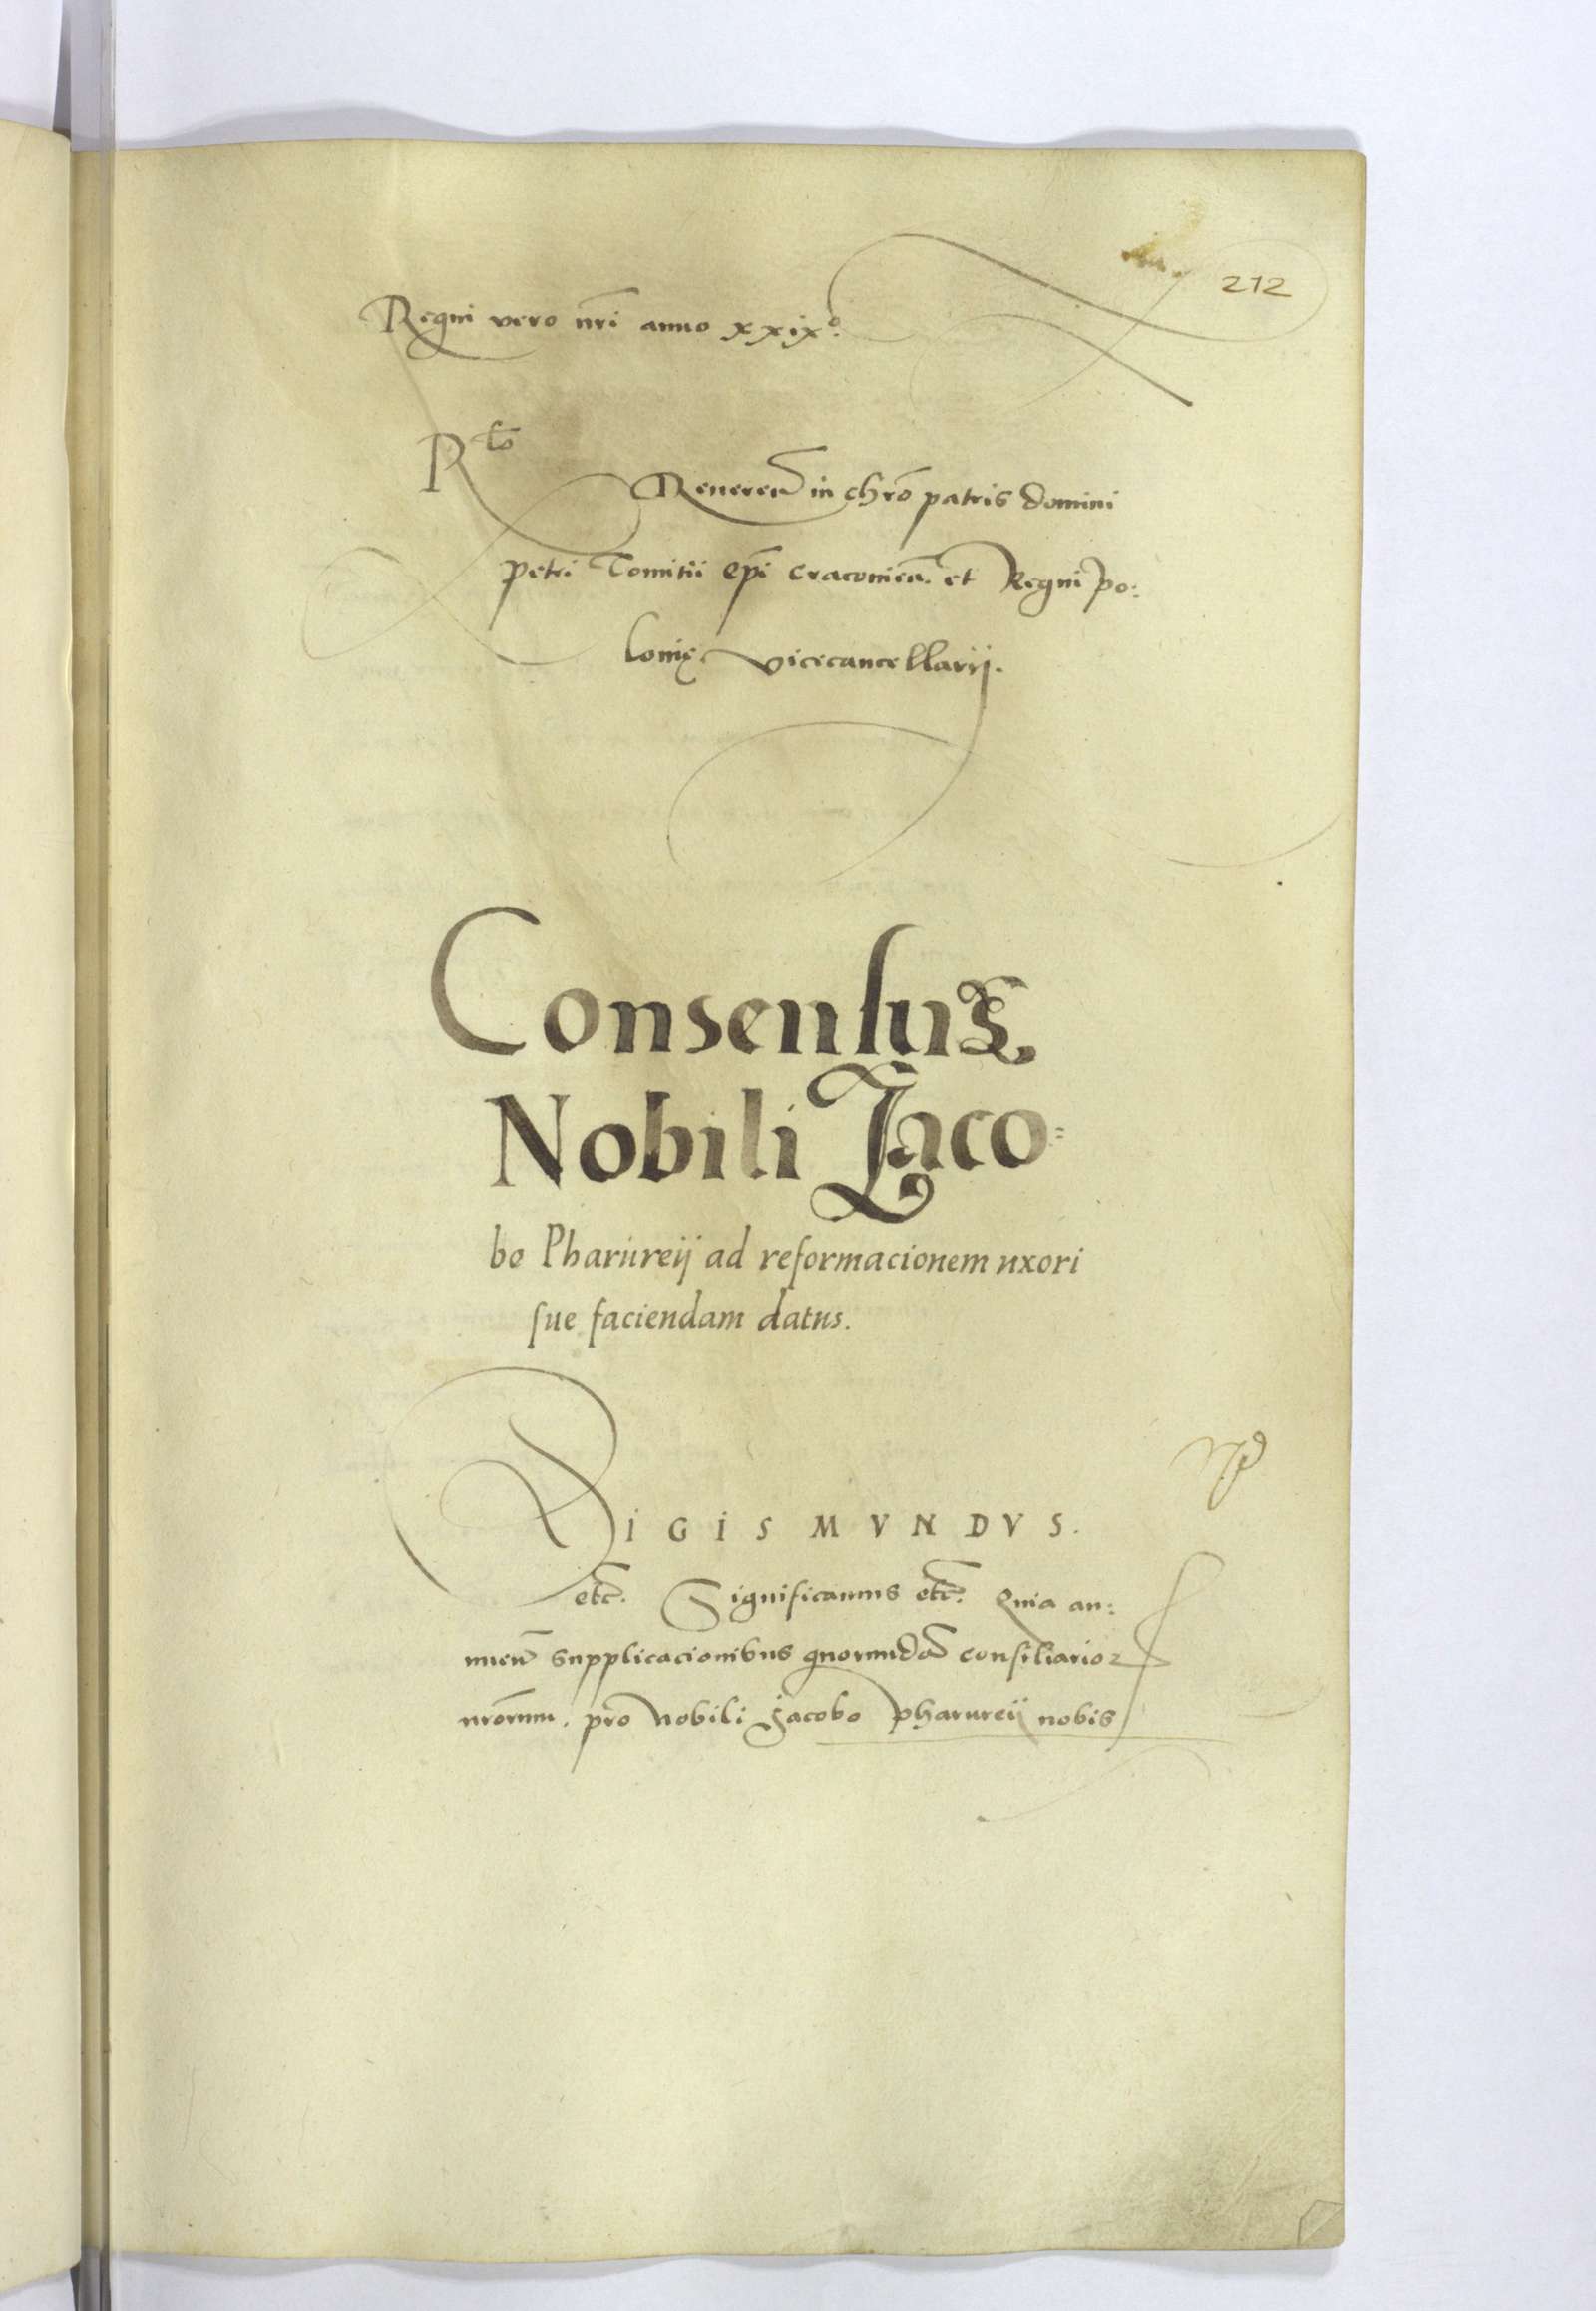 212
Regni vero nr̄i anno xxix°.
R̄lo
Reveren̄ in chrō patris domini
petri Tomitii ep̄i cracovien̄. et Regni po:
lonię vicecancellarij.
Consensus
Nobili Jaco=
bo Pharureij ad reformacionem uxori
sue faciendam datus.
SIGISMVNDVS.
etc̄. Significamus etc̄. Quia an:
nuen̄ supplicacionibus quorundā consiliarioꝝ
nrōrum. pro Nobili Jacobo pharureij nobis